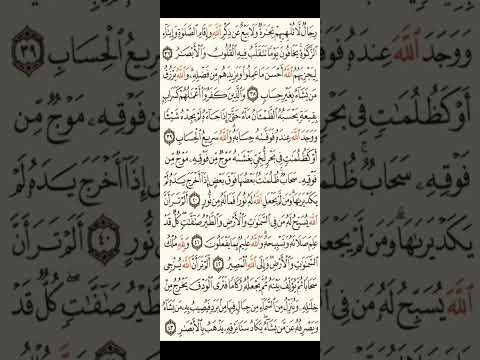 رِجَالٌ لَّا تُلْهِيهِمْ تِجَٰرَةٌ وَلَا بَيْعٌ عَن ذِكْرِ ٱللَّهِ وَإِقَامِ ٱلصَّلَوٰةِ وَإِيتَآءِ
ٱلزَّكَوٰةِ يَخَافُونَ يَوْمًا تَتَقَلَّبُ فِيهِ ٱلْقُلُوبُ وَٱلْأَبْصَٰرُ ٣٧
لِيَجْزِيَهُمُ ٱللَّهُ أَحْسَنَ مَا عَمِلُوا۟ وَيَزِيدَهُم مِّن فَضْلِهِۦ وَٱللَّهُ يَرْزُقُ
مَن يَشَآءُ بِغَيْرِ حِسَابٍ ٣٨ وَٱلَّذِينَ كَفَرُوٓا۟ أَعْمَٰلُهُمْ كَسَرَابٍۭ
بِقِيعَةٍ يَحْسَبُهُ ٱلظَّمْـَٔانُ مَآءً حَتَّىٰٓ إِذَا جَآءَهُۥ لَمْ يَجِدْهُ شَيْـًٔا
وَوَجَدَ ٱللَّهَ عِندَهُۥ فَوَفَّىٰهُ حِسَابَهُۥ وَٱللَّهُ سَرِيعُ ٱلْحِسَابِ ٣٩
أَوْ كَظُلُمَٰتٍ فِى بَحْرٍ لُّجِّىٍّ يَغْشَىٰهُ مَوْجٌ مِّن فَوْقِهِۦ مَوْجٌ مِّن
فَوْقِهِۦ سَحَابٌ ظُلُمَٰتٌۢ بَعْضُهَا فَوْقَ بَعْضٍ إِذَآ أَخْرَجَ يَدَهُۥ لَمْ
يَكَدْ يَرَىٰهَا وَمَن لَّمْ يَجْعَلِ ٱللَّهُ لَهُۥ نُورًا فَمَا لَهُۥ مِن نُّورٍ ٤٠ أَلَمْ تَرَ أَنَّ
ٱللَّهَ يُسَبِّحُ لَهُۥ مَن فِى ٱلسَّمَٰوَٰتِ وَٱلْأَرْضِ وَٱلطَّيْرُ صَٰٓفَّٰتٍ كُلٌّ قَدْ
عَلِمَ صَلَاتَهُۥ وَتَسْبِيحَهُۥ وَٱللَّهُ عَلِيمٌۢ بِمَا يَفْعَلُونَ ٤١ وَلِلَّهِ مُلْكُ
ٱلسَّمَٰوَٰتِ وَٱلْأَرْضِ وَإِلَى ٱللَّهِ ٱلْمَصِيرُ ٤٢ أَلَمْ تَرَ أَنَّ ٱللَّهَ يُزْجِى
سَحَابًا ثُمَّ يُؤَلِّفُ بَيْنَهُۥ ثُمَّ يَجْعَلُهُۥ رُكَامًا فَتَرَى ٱلْوَدْقَ يَخْرُجُ مِنْ
خِلَٰلِهِۦ وَيُنَزِّلُ مِنَ ٱلسَّمَآءِ مِن جِبَالٍ فِيهَا مِنۢ بَرَدٍ فَيُصِيبُ بِهِۦ مَن يَشَآءُ
وَيَصْرِفُهُۥ عَن مَّن يَشَآءُ يَكَادُ سَنَا بَرْقِهِۦ يَذْهَبُ بِٱلْأَبْصَٰرِ ٤٣